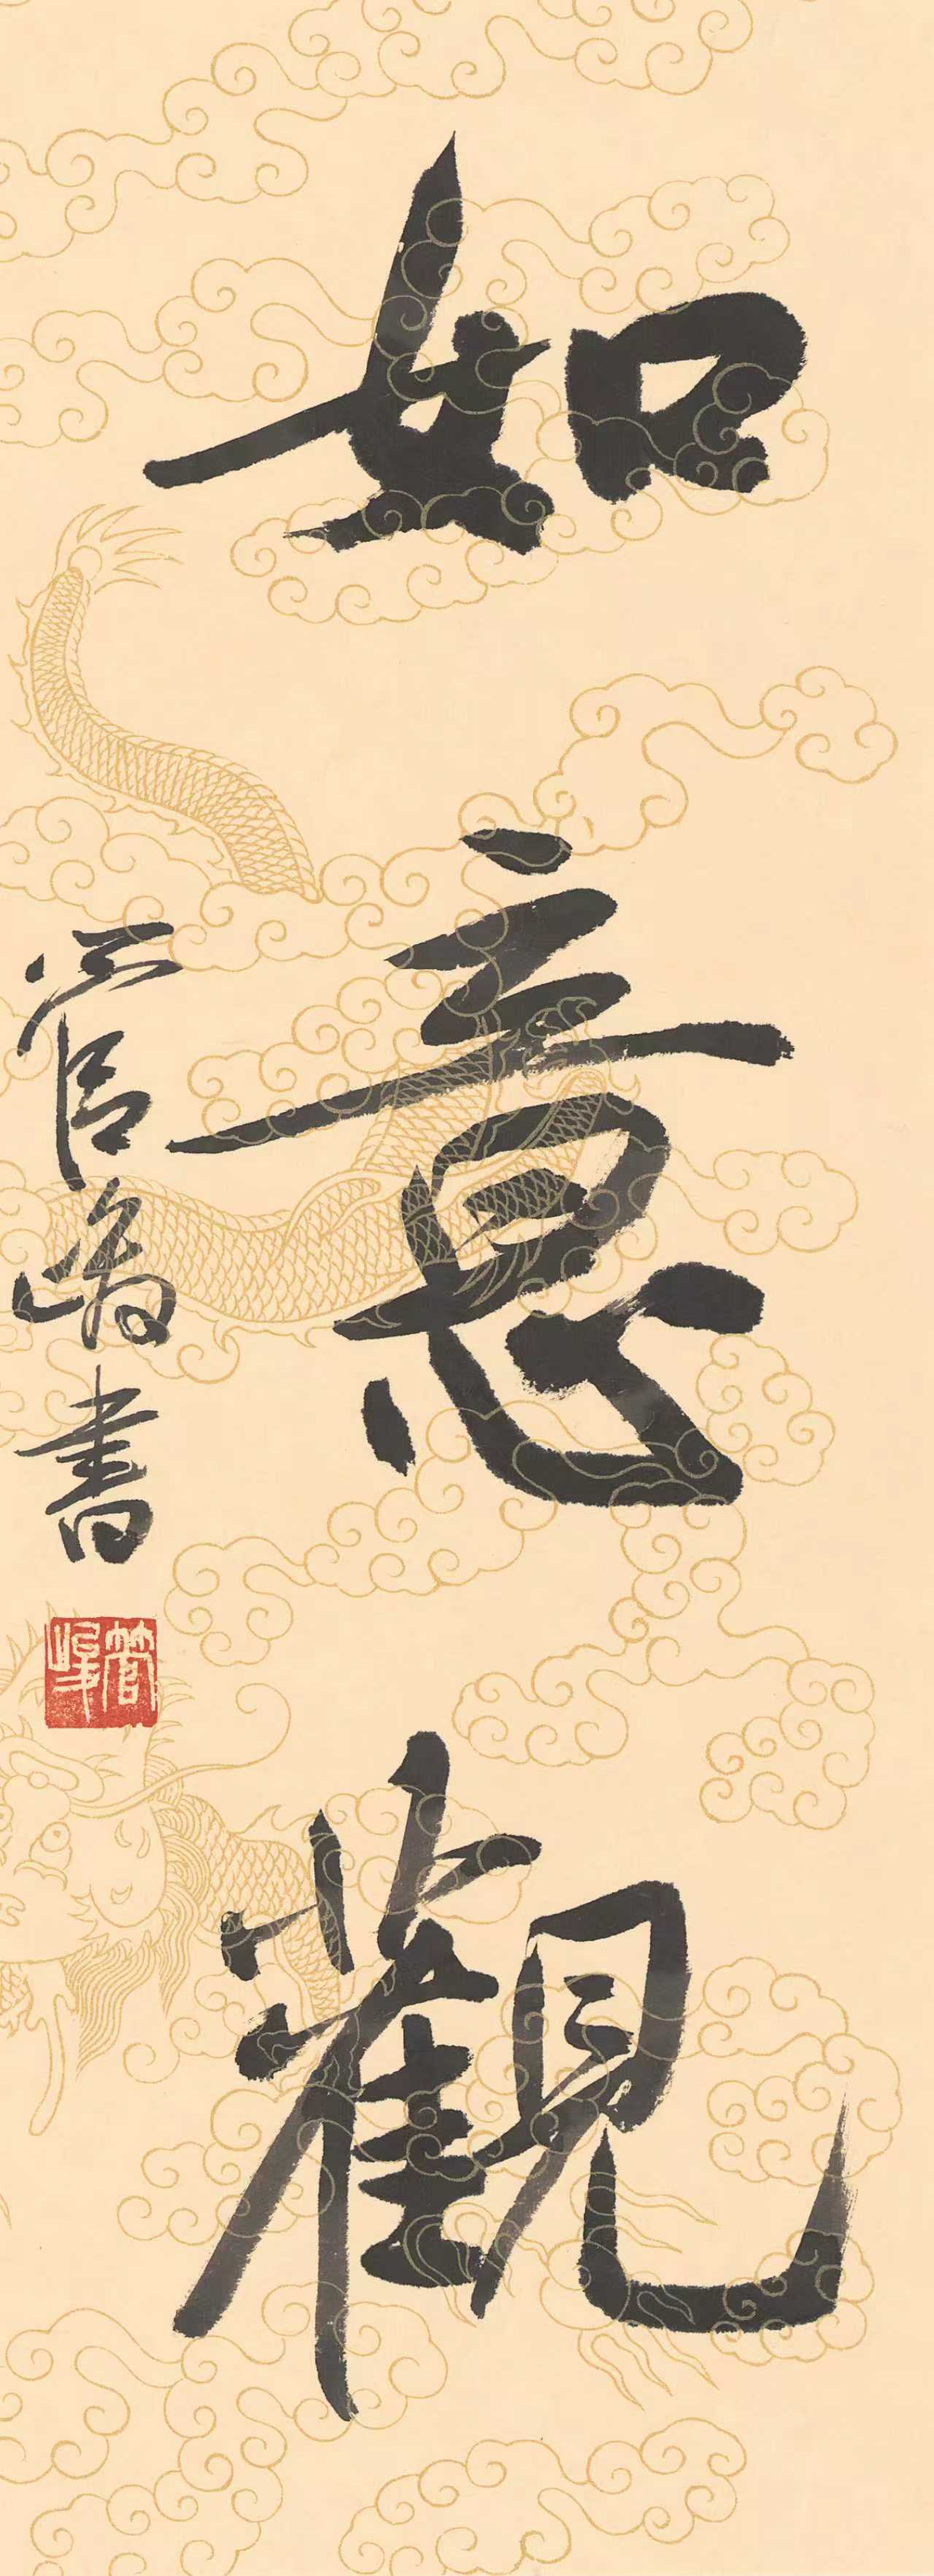 如意觀
管峻書
管峻